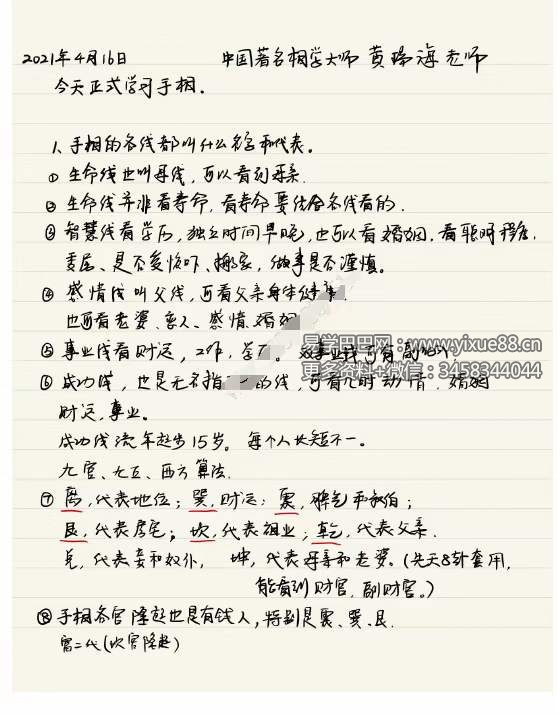 2021年4月16日 中国著名相学大师 黄 海老师
今天正式学习手相.
1、手相的各线都叫什么名字和代表。
① 生命线也叫母线,可以看到母亲.
② 生命线并非看寿命,看寿命要结合各线看的.
③ 智慧线看学历,独立时间早晚,也可以看婚姻.看聪明程度,
委屈、是否受惊吓、搬家,做事是否谨慎。
④ 感情线叫父线,可看父亲身体健
也可看老婆、亲人、感情、婚姻
⑤ 事业线看财运,工作,学历。
⑥ 成功线,也是无名指 的线,可看几时动情,婚姻
财运,事业。
成功线流年起步15岁。每个人长短不一。
九宫、九五、西方算法.
⑦ 离,代表地位;巽,财运;震,脾气和叔伯;
艮,代表房宅;坎,代表祖业;乾,代表父亲.
兑,代表妾和奴仆, 坤,代表母亲和老婆。(先天8卦套用,
能看到财宫,副财宫。)
⑧ 手相各宫隆起也是有钱人,特别是震、巽、艮.
富二代(坎宫隆起)
易学巴巴网:www.yixue88.cn
更多资料+微信:3458344044